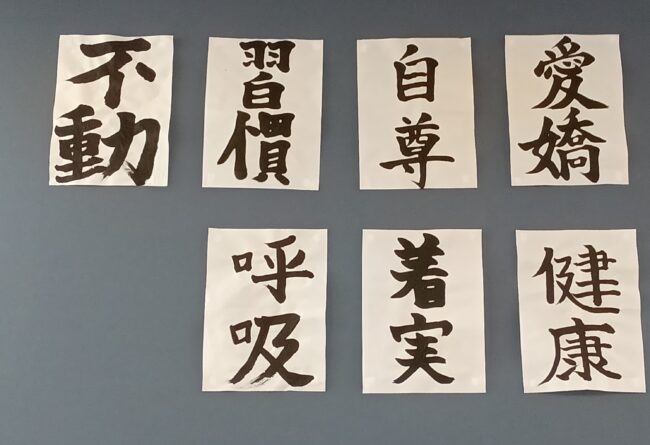 愛嬌
自尊
習慣
不動
健康
着実
呼吸